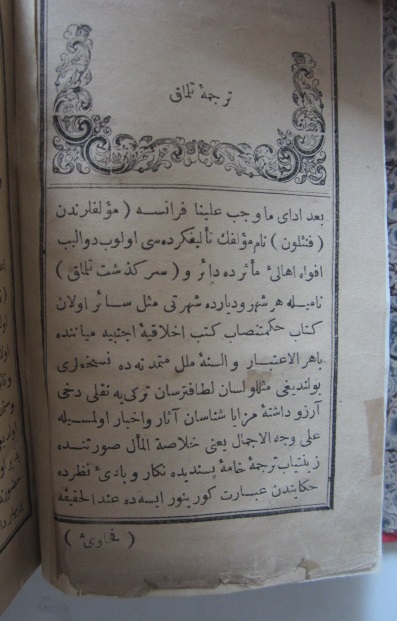 ترجمهٔ تلماق
بعد ادای ما وجب علینا فرانسه ( مؤلفلرندن
( فنلون ) نام مؤلفك تألیفكرده‌سی اولوب دوالیب
افواه اهالئ مأثرده دائر و ( سركذشت تلماق )
نامیله هر شهر ودیارده شهرتی مثل سائر اولان
كتاب حكمتنصاب كتب اخلاقیهٔ اجنبیه میاننده
باهر الاعتبار و السنهٔ ملل متمدنه‌ده نسخه‌لری
بولندیغی مثللو لسان لطافترسان تركی‌یه نقلی دخی
آرزو داشتهٔ مزایا شناسان آثار واخبار اولمسیله
علی وجه الاجمال یعنی خلاصة المأل صورتنده
زینتیاب ترجمهٔ خامهٔ پسندیده نكار و بادئ نظرده
حكایه‌دن عبارت كورینور ایسه‌ده عند الحقیقه
( فحاوئ )